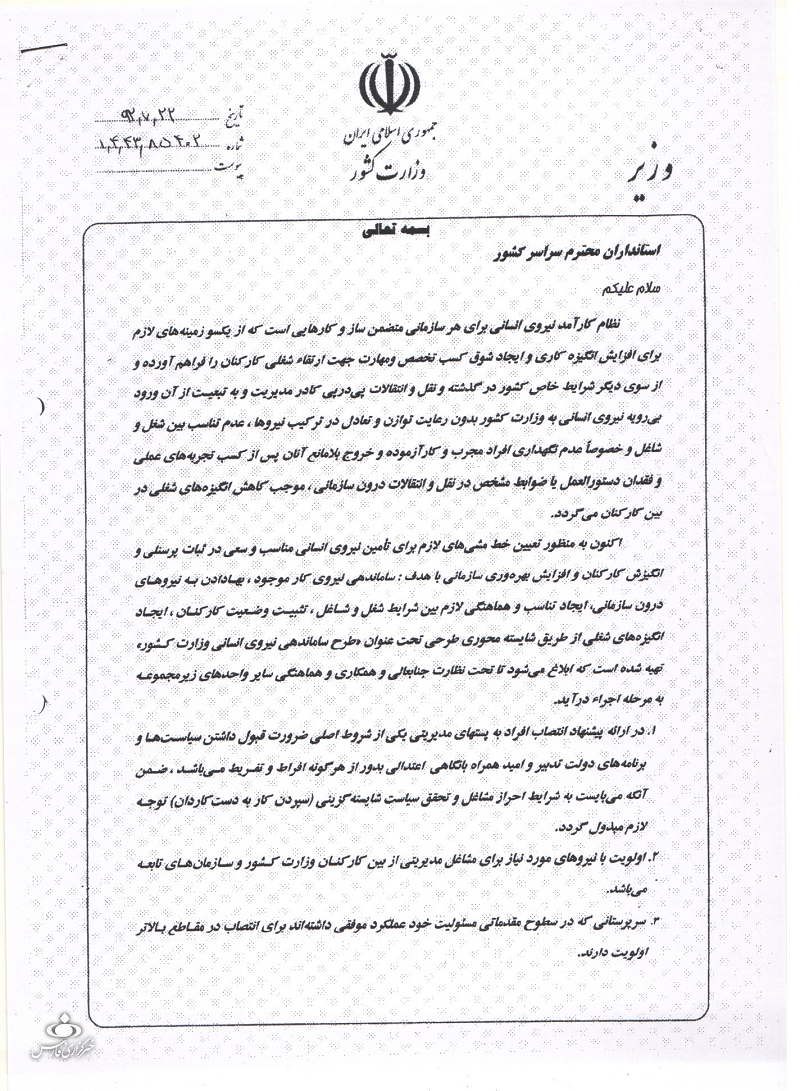 جمهوری اسلامی ایران
وزارت کشور
وزیر
تاریخ ۹۲٫۷٫۲۲
شماره
پیوست
بسمه تعالی
استانداران محترم سراسر کشور
سلام علیکم
نظام کارآمد نیروی انسانی برای هر سازمانی متضمن ساز و کارهایی است که از یکسو زمینه‌های لازم
برای افزایش انگیزه کاری و ایجاد شوق کسب تخصص ومهارت جهت ارتقاء شغلی کارکنان را فراهم آورده و
از سوی دیگر شرایط خاص کشور در گذشته و نقل و انتقالات پی‌درپی کادر مدیریت و به تبعیت از آن ورود
بی‌رویه نیروی انسانی به وزارت کشور بدون رعایت توازن و تعادل در ترکیب نیروها ، عدم تناسب بین شغل و
شاغل و خصوصاً عدم نگهداری افراد مجرب و کارآزموده و خروج بلامانع آنان پس از کسب تجربه‌های عملی
و فقدان دستورالعمل یا ضوابط مشخص در نقل و انتقالات درون سازمانی ، موجب کاهش انگیزه‌های شغلی در
بین کارکنان می‌گردد.
اکنون به منظور تعیین خط مشی‌های لازم برای تأمین نیروی انسانی مناسب و سعی در ثبات پرسنلی و
انگیزش کارکنان و افزایش بهره‌وری سازمانی با هدف : ساماندهی نیروی کار موجود ، بهادادن به نیروهای
درون سازمانی، ایجاد تناسب و هماهنگی لازم بین شرایط شغل و شاغل ، تثبیت وضعیت کارکنان ، ایجاد
انگیزه‌های شغلی از طریق شایسته محوری طرحی تحت عنوان «طرح ساماندهی نیروی انسانی وزارت کشور»
تهیه شده است که ابلاغ می‌شود تا تحت نظارت جنابعالی و همکاری و هماهنگی سایر واحدهای زیرمجموعه
به مرحله اجراء درآید.
۱. در ارائه پیشنهاد انتصاب افراد به پستهای مدیریتی یکی از شروط اصلی ضرورت قبول داشتن سیاست‌ها و
برنامه‌های دولت تدبیر و امید همراه بانگاهی اعتدالی بدور از هرگونه افراط و تفریط می‌باشد ، ضمن
آنکه می‌بایست به شرایط احراز مشاغل و تحقق سیاست شایسته‌گزینی (سپردن کار به دست کاردان) توجه
لازم مبذول گردد.
۲. اولویت با نیروهای مورد نیاز برای مشاغل مدیریتی از بین کارکنان وزارت کشور و سازمان‌های تابعه
می‌باشد.
۳. سرپرستانی که در سطوح مقدماتی مسئولیت خود عملکرد موفقی داشته‌اند برای انتصاب در مقاطع بالاتر
اولویت دارند.
خبرگزاری فارس